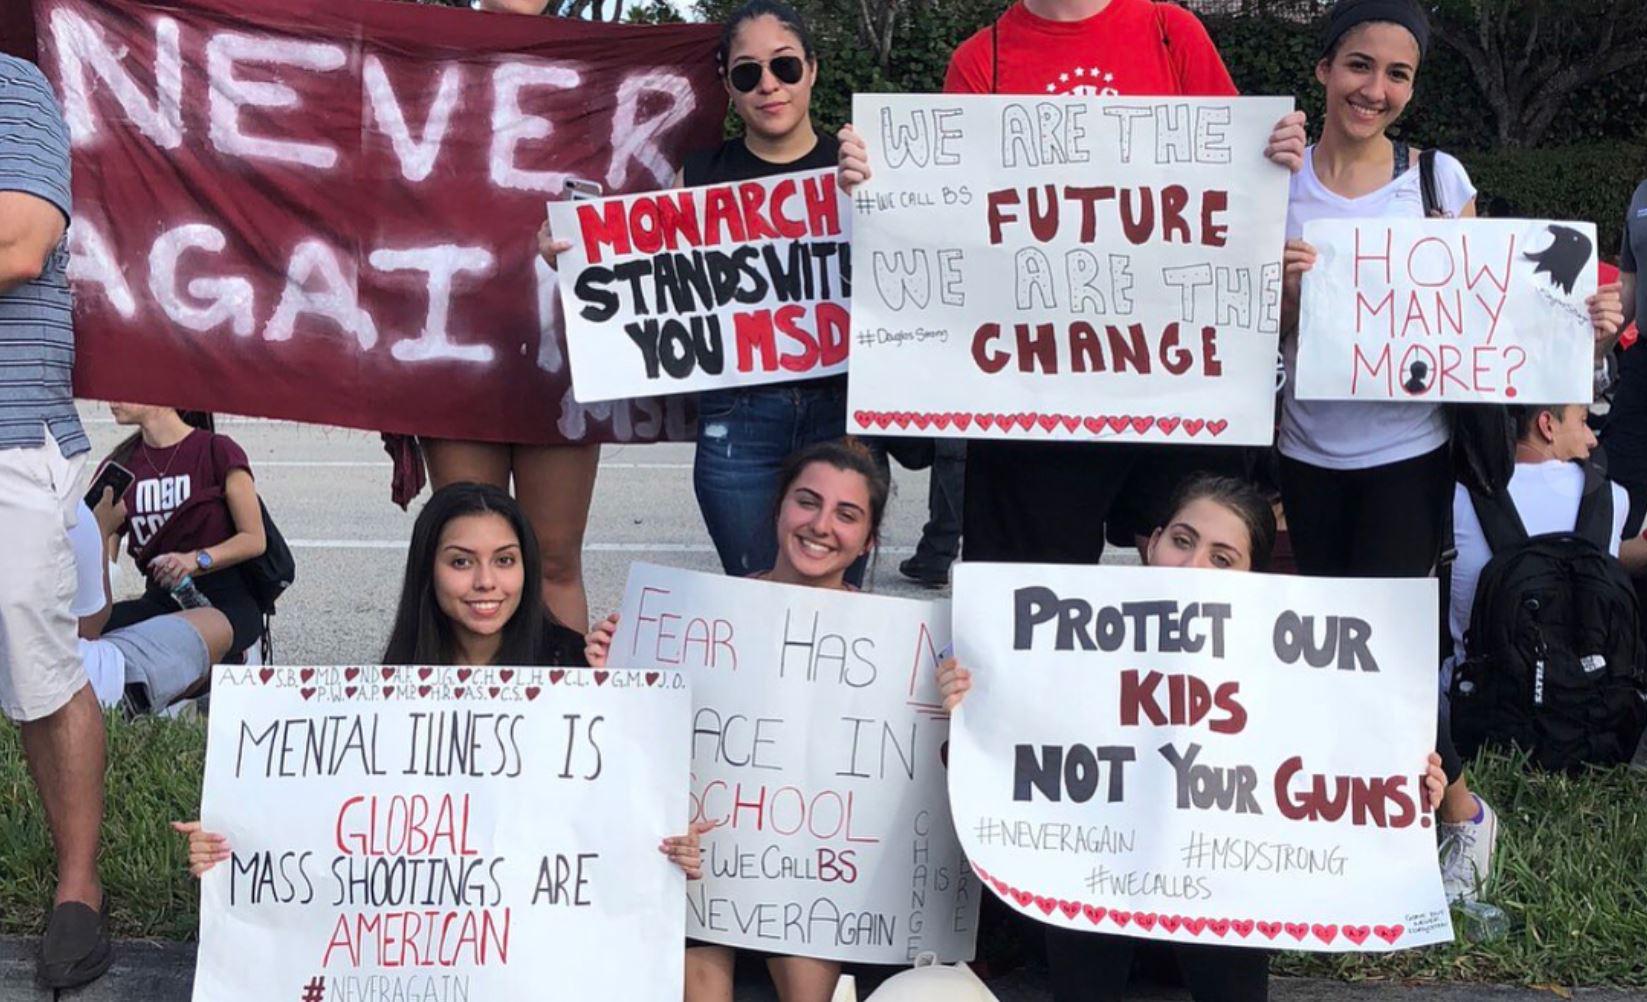 NEVER
AGAI
MSD
MONARCH
STANDS WITH
YOU MSD
WE ARE THE
#WE CALL BS
FUTURE
WE ARE THE
#Douglas Strong
CHANGE
HOW
MANY
MORE?
MSD
A.A♥S.B♥M.D.♥N.D♥A.F.♥J.G.♥C.H.♥L.H.♥C.L.♥G.M.♥J.O.
♥P.W.♥A.P.♥M.P.♥H.R.♥A.S.♥C.S.♥
MENTAL ILLNESS IS
GLOBAL
MASS SHOOTINGS ARE
AMERICAN
#NEVERAGAIN
FEAR HAS N
ACE IN
SCHOOL
WECALLBS
NEVERAGAIN
CHANGE
IS
PROTECT OUR
KIDS
NOT YOUR GUNS!
#NEVERAGAIN #MSDSTRONG
#WECALLBS
GONE BUT
NEVER
FORGOTTEN